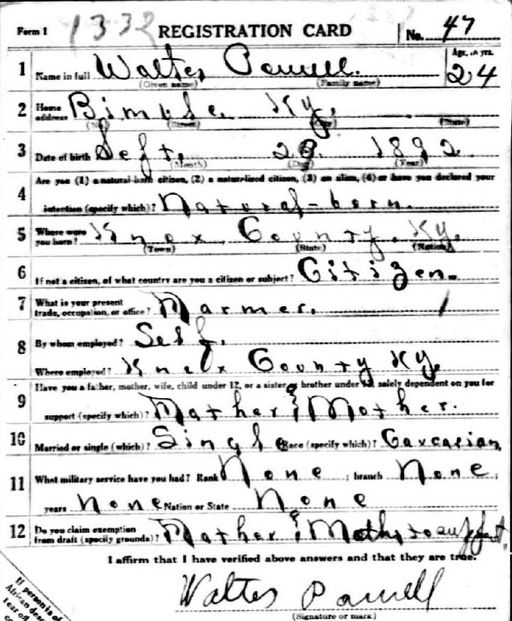 Form 1 1332 REGISTRATION CARD No. 47
1 Name in full Walter Powell. Age, in yrs. 24
(Given name) (Family name)
2 Home address Bimble Ky.
(Street) (City) (State)
3 Date of birth Sept. 28 1892
(Month) (Day) (Year)
4 Are you (1) a natural-born citizen, (2) a naturalized citizen, (3) an alien, (4) or have you declared your
intention (specify which)? Natural-born.
5 Where were you born? Knox County, Ky.
(Town) (State) (Nation)
6 If not a citizen, of what country are you a citizen or subject? Citizen.
7 What is your present trade, occupation, or office? Farmer.
8 By whom employed? Self.
Where employed? Knox County Ky.
9 Have you a father, mother, wife, child under 12, or a sister or brother under 12, solely dependent on you for
support (specify which)? Father & Mother.
10 Married or single (which)? Single Race (specify which)? Caucasian
11 What military service have you had? Rank None ; branch None ;
years None Nation or State None
12 Do you claim exemption from draft (specify grounds)? Father & Mother to support
I affirm that I have verified above answers and that they are true.
Walter Powell
(Signature or mark)
If person is of
African des
tear off